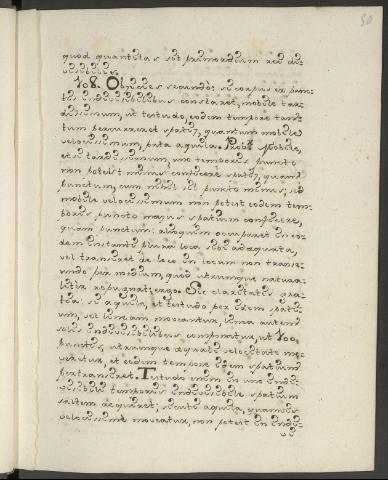 50
quod quantitas sit primordium rei di-
visibilis.
108. Objicies secundò: si corpus ex punc-
tis indivisibilibus constaret, mobile tar-
dissimum, ut testudo, eodem tempore tan-
tum percurreret spatij, quantum mobile
velocissimum, puta aquila. Probr. Mobile,
etsi tardissimum, uno temporis puncto
non potest minus conficere spatij, quam
punctum, cum nihil sit puncto minus; sed
mobile velocissimum non potest eodem tem-
poris puncto majus spatium conficere,
quam punctum: alioquin occuparet in eo-
dem instanti plura loca sibi adæquata,
vel transiret de loco in locum non trans-
eundo per medium, quod utrumque natura-
liter repugnat; ergo. Sic claritatis gra-
tia: si aquila, et testudo per idem spati-
um, vel lineam moveantur, linea autem
solis indivisibilibus componatur, ut 100
punctis, utrumque æquali velocitate mo-
veretur, et eodem tempore idem spatium
pertransiret. Testudo enim in uno indi-
visibili temporis indivisibile spatium
saltem acquiret; sicuti aquila, quamvis
velocissimè moveatur, non potest in indi-
vi